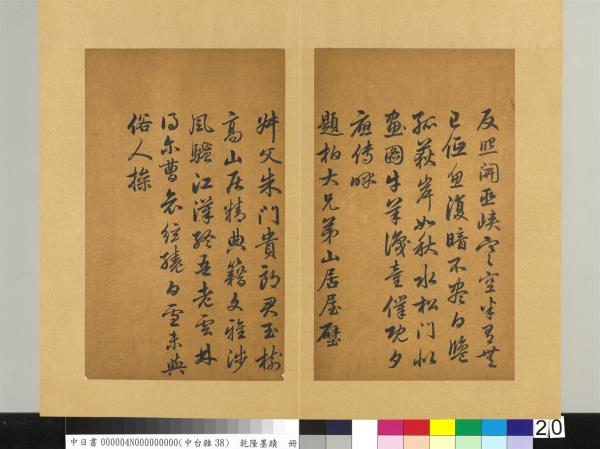 反照開巫峽寒空半有無
已低魚復暗不盡白鹽
孤荻岸如秋水松門似
畫圖牛羊識童僕既夕
應傳呼
題柏大兄弟山居屋壁
叔父朱門貴郎君玉樹
高山居精典籍文雅涉
風騷江漢終吾老雲林
得爾曹哀絃繞白雪未與
俗人操
中日書 000004N000000000(中台雜 38) 乾隆墨蹟 冊
20